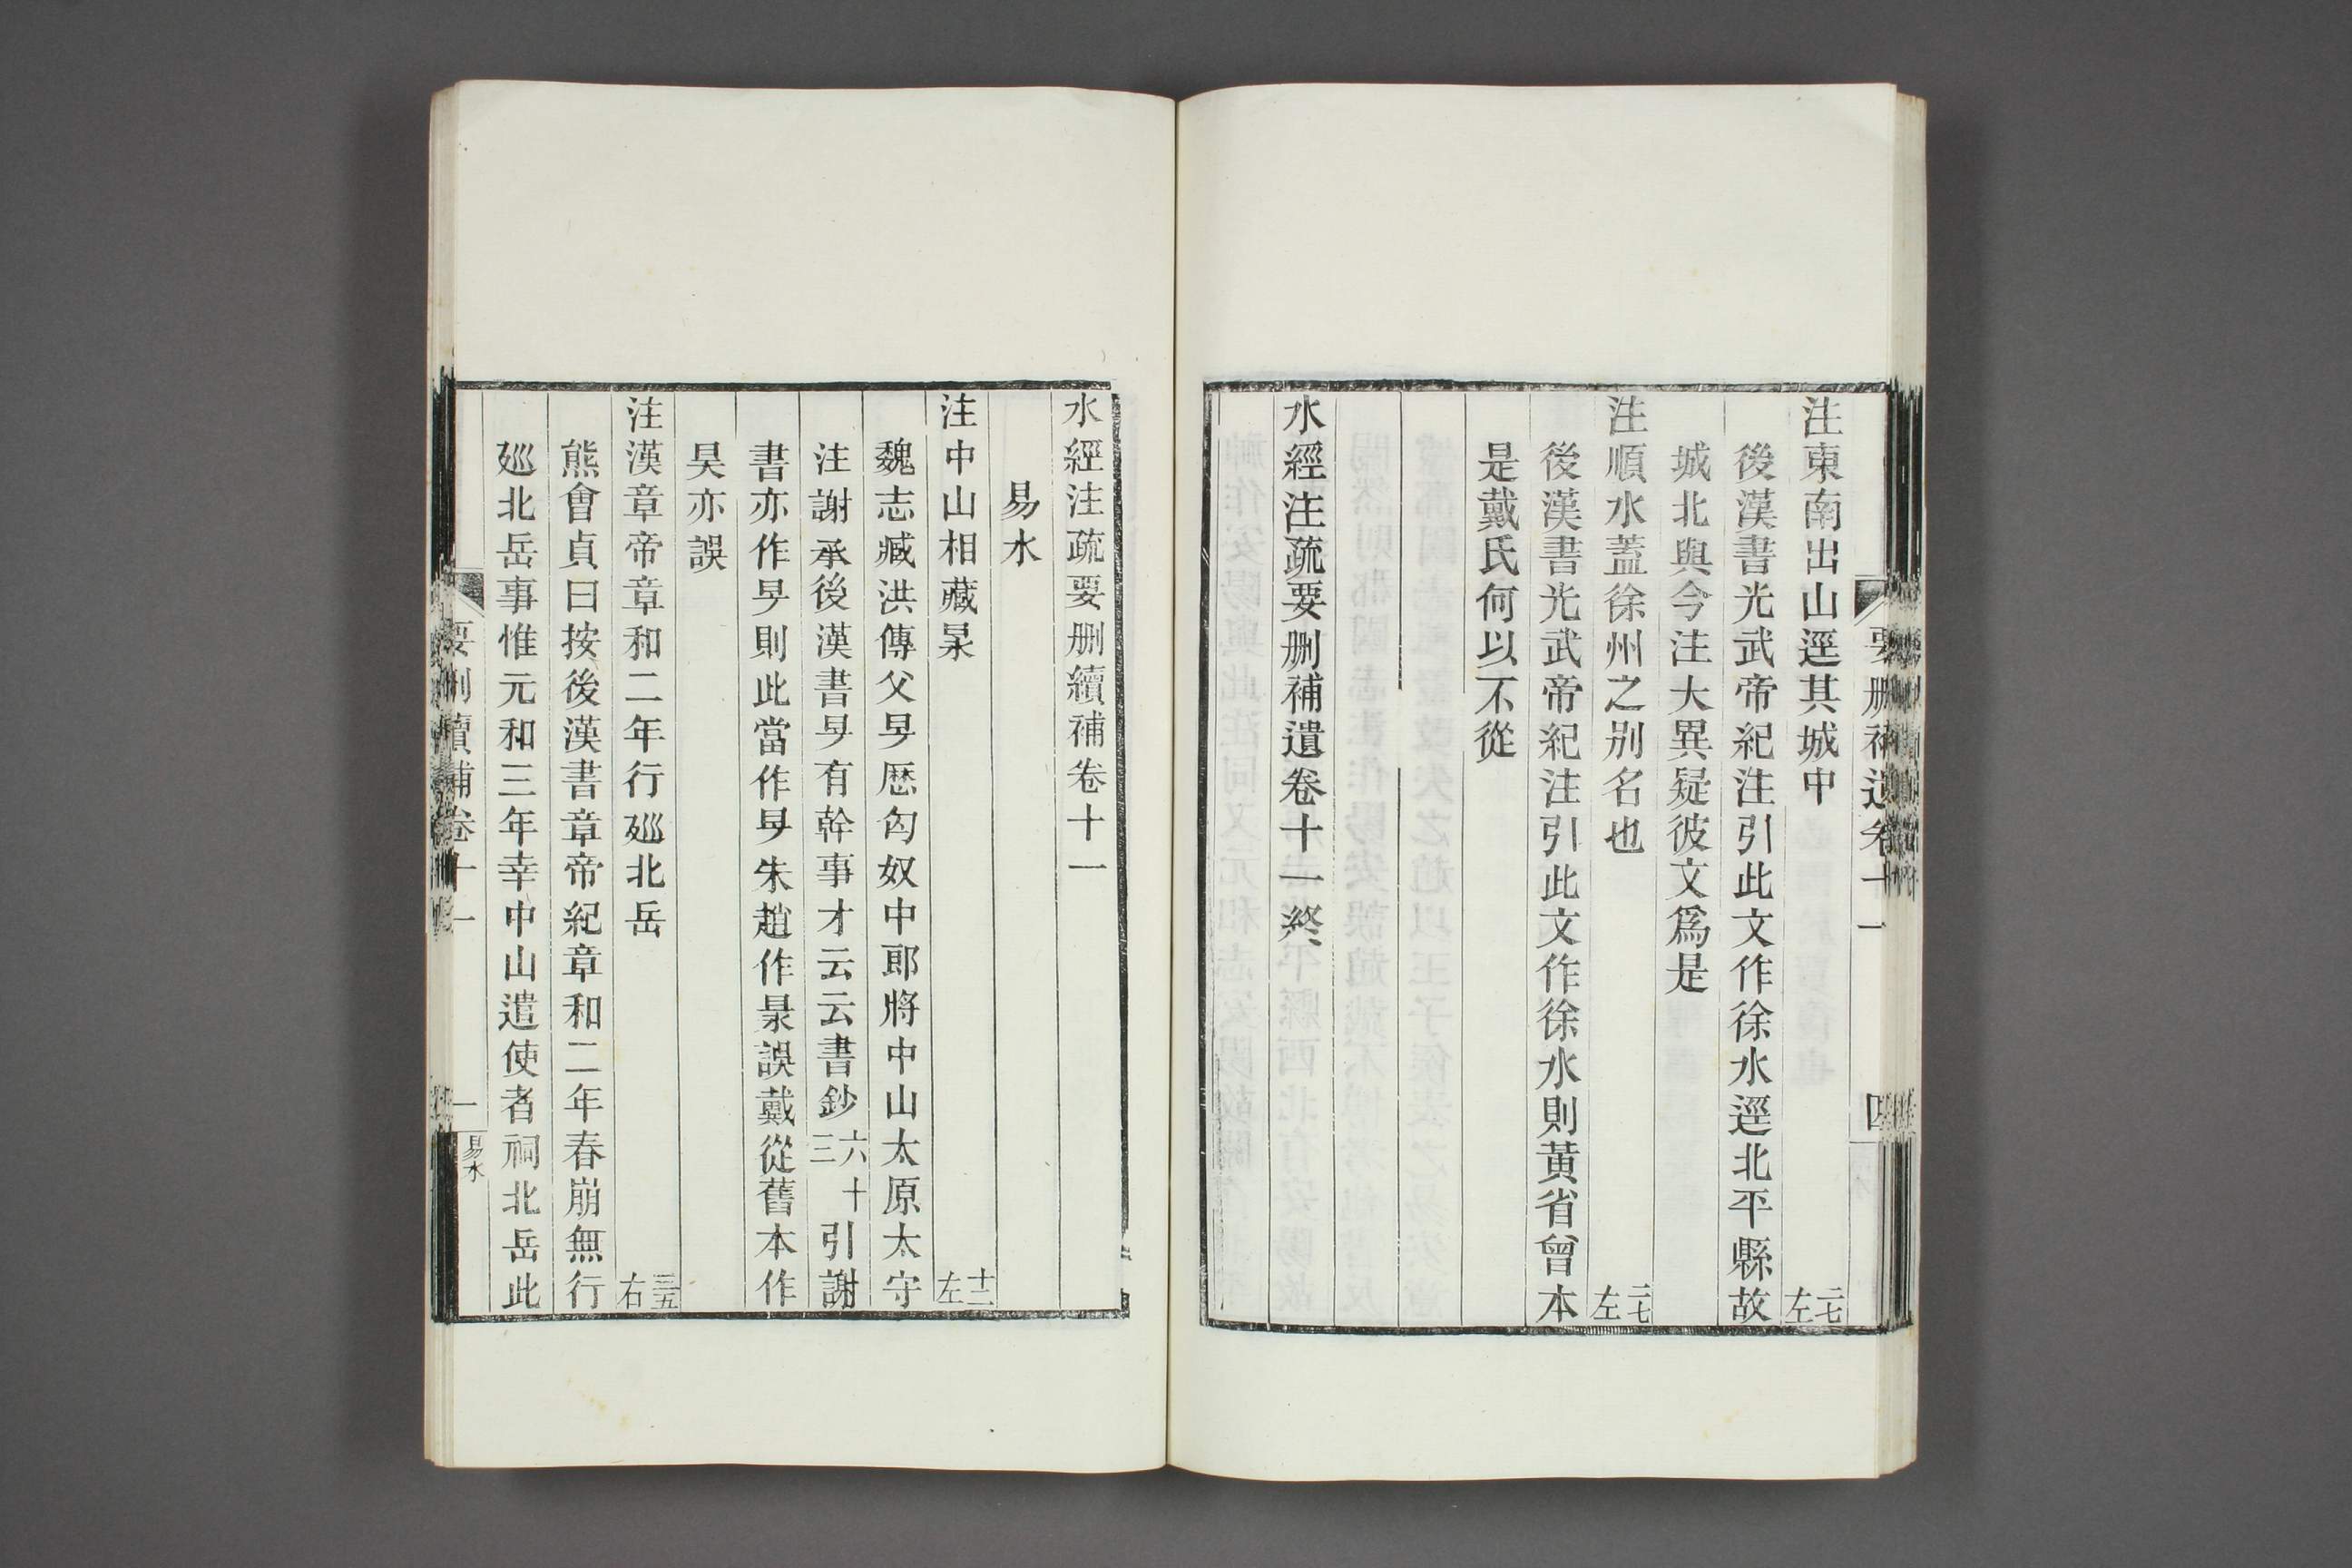 要刪補遺卷十一 四
注東南出山逕其城中 二七左
後漢書光武帝紀注引此文作徐水逕北平縣故
城北與今注大異疑彼文爲是
注順水蓋徐州之別名也 二七左
後漢書光武帝紀注引此文作徐水則黃省曾本
是戴氏何以不從
水經注疏要刪補遺卷十一終
水經注疏要刪續補卷十一
易水
注中山相藏旻 十二左
魏志臧洪傳父旻歷匈奴中郎將中山太原太守
注謝承後漢書旻有幹事才云云書鈔六十三引謝
書亦作旻則此當作旻朱趙作㬥誤戴從舊本作
昊亦誤
注漢章帝章和二年行廵北岳 三五右
熊會貞曰按後漢書章帝紀章和二年春崩無行
廵北岳事惟元和三年幸中山遣使者祠北岳此
要刪續補卷十一 一 易水